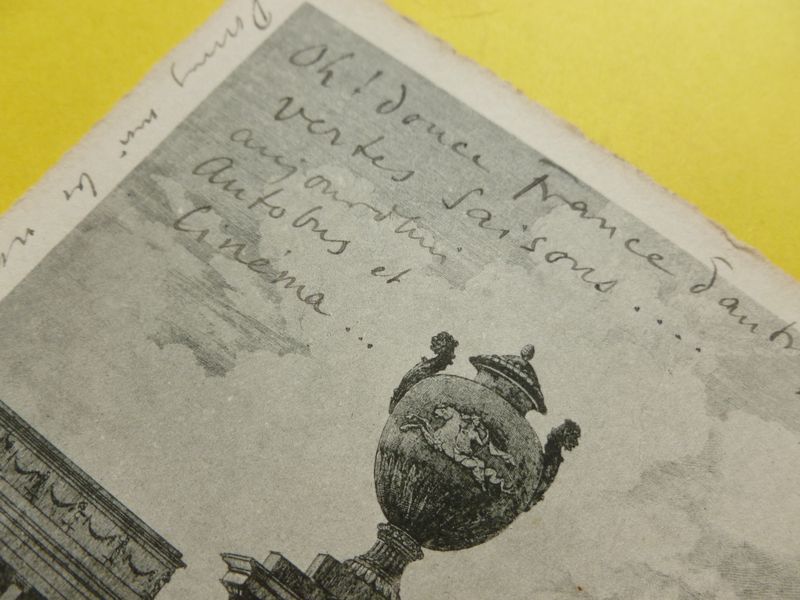 Oh! douce France d'autr
vertes saisons....
aujourd'hui
Autobus et
Cinéma...